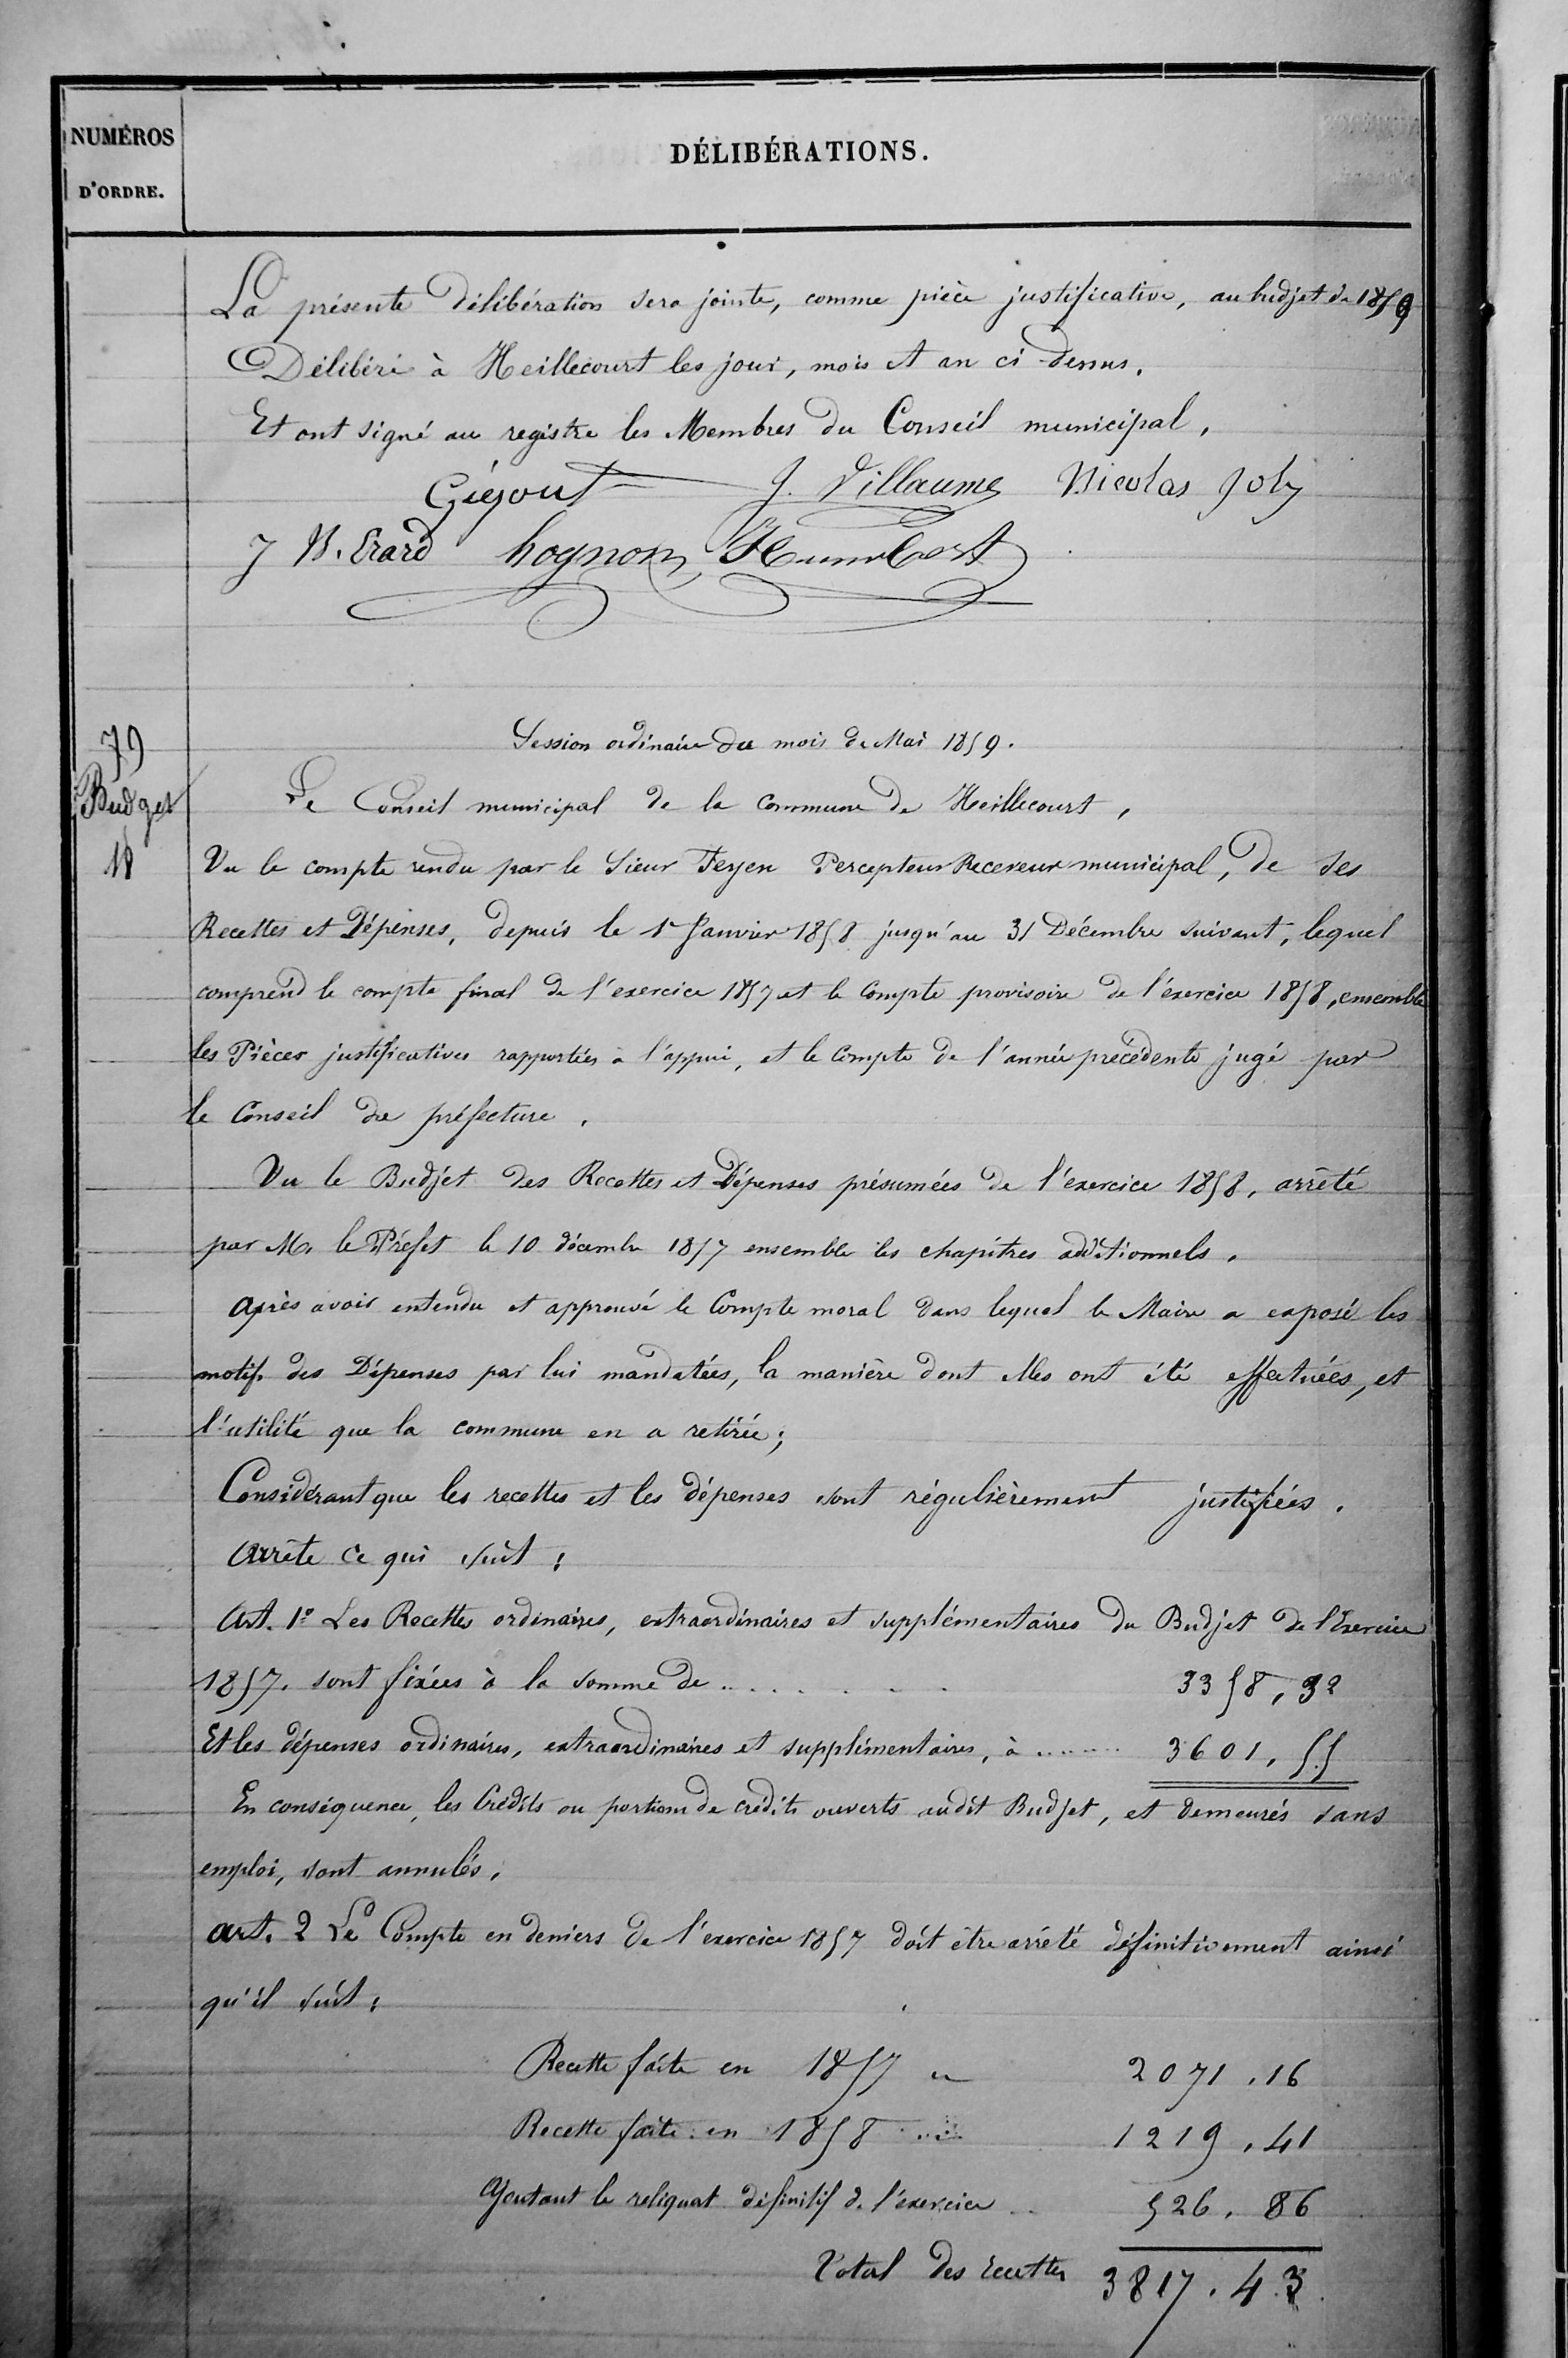 NUMÉROS
D'ORDRE.
DÉLIBÉRATIONS.
La présente délibération sera jointe, comme pièce justificative, au budjet de 1859
Délibéré à Heillecourt les jour, mois et an ci-dessus.
Et ont signé au registre les Membres du Conseil municipal.
Gégout J. Villaume Nicolas Joly
J N. Erard hognon Humbert
79
Budget
Session ordinaire du mois de Mai 1859.
Le Conseil municipal de la commune de Heillecourt,
Vu le compte rendu par le Sieur Feyen Percepteur Receveur municipal, de ses
Recettes et Dépenses, depuis le 1r Janvier 1858 jusqu'au 31 Décembre suivant, lequel
comprend le compte final de l'exercice 1857 et le Compte provisoire de l'exercice 1858, ensemble
les Pièces justificatives rapportées à l'appui, et le Compte de l'année precédente jugé par
le Conseil de préfecture.
Vu le Budjet des Recettes et Dépenses présumées de l'exercice 1858, arrêté
par Mr le Préfet le 10 décembre 1857 ensemble les chapitres additionnels.
Après avoir entendu et approuvé le Compte moral dans lequel le Maire a exposé les
motifs des Dépenses par lui mandatées, la manière dont elles ont été effectuées, et
l'utilité que la commune en a retirée;
Considérant que les recettes et les dépenses sont régulièrement justifiées.
Arrête ce qui suit:
Art. 1º Les Recettes ordinaires, extraordinaires et supplémentaires du Budjet de l'Exercice
1857. sont fixées à la somme de ........ 3358,32
Et les dépenses ordinaires, extraordinaires et supplémentaires, à ..... 3601,55
En conséquence, les Crédits ou portions de crédits ouverts audit Budjet, et demeurés sans
emploi, sont annulés.
art. 2 Le Compte en deniers de l'exercice 1857 doit être arrêté définitivement ainsi
qu'il suit:
Recette faite en 1857 2071.16
Recette faite en 1858 ... 1219.41
Ajoutant le reliquat définitif de l'exercice .. 526.86
Total des recettes 3817.43